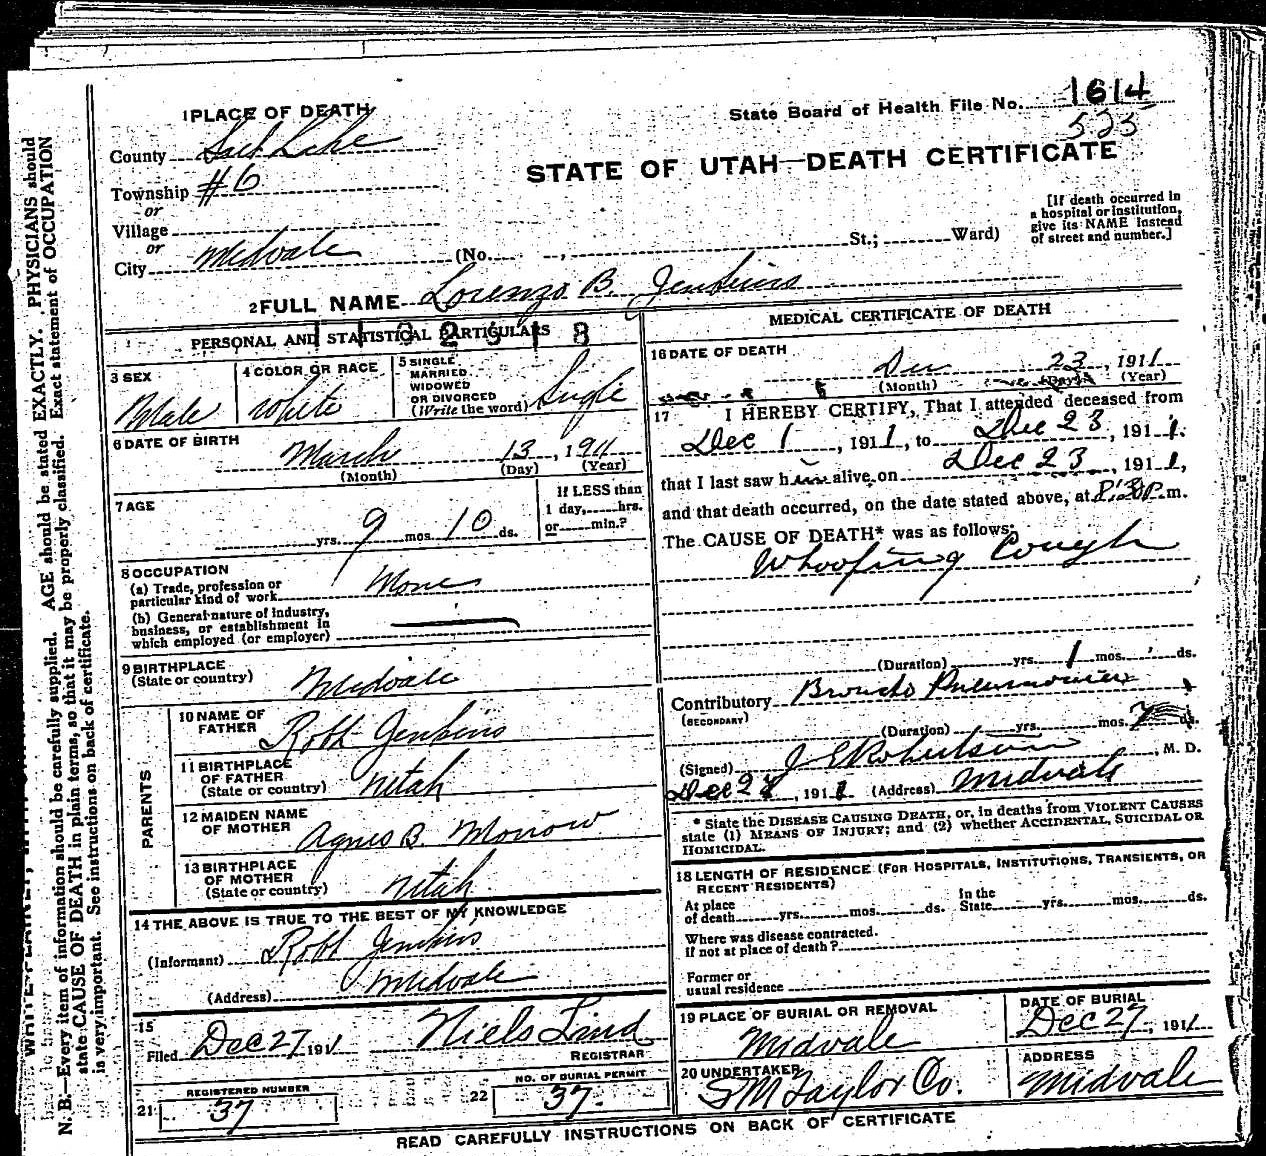 1 PLACE OF DEATH
State Board of Health File No. 1614
525
County Salt Lake
STATE OF UTAH—DEATH CERTIFICATE
Township #6
or
Village
or
City Midvale (No. , St.; Ward)
[If death occurred in
a hospital or institution,
give its NAME instead
of street and number.]
2 FULL NAME Lorenzo B. Jenkins
PERSONAL AND STATISTICAL PARTICULARS
3 SEX
Male
4 COLOR OR RACE
White
5 SINGLE
MARRIED
WIDOWED
OR DIVORCED
(Write the word) Single
6 DATE OF BIRTH
March 13, 1911
(Month) (Day) (Year)
7 AGE
yrs. 9 mos. 10 ds.
If LESS than
1 day, hrs.
or min.?
8 OCCUPATION
(a) Trade, profession or
particular kind of work None
(b) General nature of industry,
business, or establishment in
which employed (or employer)
9 BIRTHPLACE
(State or country) Midvale
PARENTS
10 NAME OF
FATHER Robt Jenkins
11 BIRTHPLACE
OF FATHER
(State or country) Utah
12 MAIDEN NAME
OF MOTHER Agnes B. Morrow
13 BIRTHPLACE
OF MOTHER
(State or country) Utah
14 THE ABOVE IS TRUE TO THE BEST OF MY KNOWLEDGE
(Informant) Robt Jenkins
(Address) Midvale
15
Filed Dec 27 1911 Niels Lind
REGISTRAR
21 REGISTERED NUMBER
37
22 NO. OF BURIAL PERMIT
37
MEDICAL CERTIFICATE OF DEATH
16 DATE OF DEATH
Dec 23, 1911
(Month) (Day) (Year)
17 I HEREBY CERTIFY, That I attended deceased from
Dec 1, 1911, to Dec 23, 1911.
that I last saw him alive on Dec 23, 1911,
and that death occurred, on the date stated above, at P. m.
The CAUSE OF DEATH* was as follows:
Whooping Cough
(Duration) yrs. 1 mos. ds.
Contributory Broncho Pneumonia
(SECONDARY)
(Duration) yrs. mos. 7 ds.
(Signed) J E Robertson, M. D.
Dec , 1911 (Address) Midvale
* State the DISEASE CAUSING DEATH, or, in deaths from VIOLENT CAUSES
state (1) MEANS OF INJURY; and (2) whether ACCIDENTAL, SUICIDAL OR
HOMICIDAL.
18 LENGTH OF RESIDENCE (FOR HOSPITALS, INSTITUTIONS, TRANSIENTS, OR
RECENT RESIDENTS)
At place
of death yrs. mos. ds.
In the
State yrs. mos. ds.
Where was disease contracted.
If not at place of death?
Former or
usual residence
19 PLACE OF BURIAL OR REMOVAL
Midvale
DATE OF BURIAL
Dec 27, 1911
20 UNDERTAKER
S M Taylor Co.
ADDRESS
Midvale
READ CAREFULLY INSTRUCTIONS ON BACK OF CERTIFICATE
N. B.—Every item of information should be carefully supplied. AGE should be stated EXACTLY. PHYSICIANS should
state CAUSE OF DEATH in plain terms, so that it may be properly classified. Exact statement of OCCUPATION
is very important. See instructions on back of certificate.